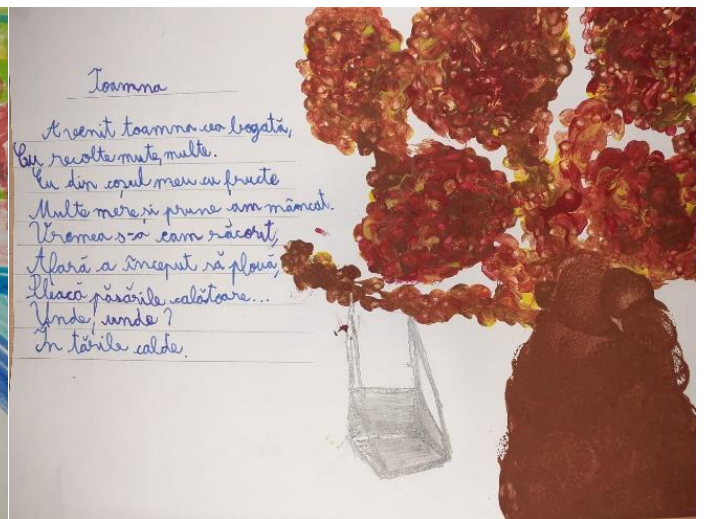 Toamna
A venit toamna cea bogată,
Cu recolte mute, multe.
Eu din coșul meu cu fructe
Multe mere și prune am mâncat.
Vremea s-a cam răcorit,
Afară a început să plouă,
Pleacă păsările calătoare...
Unde, unde?
În țările calde.